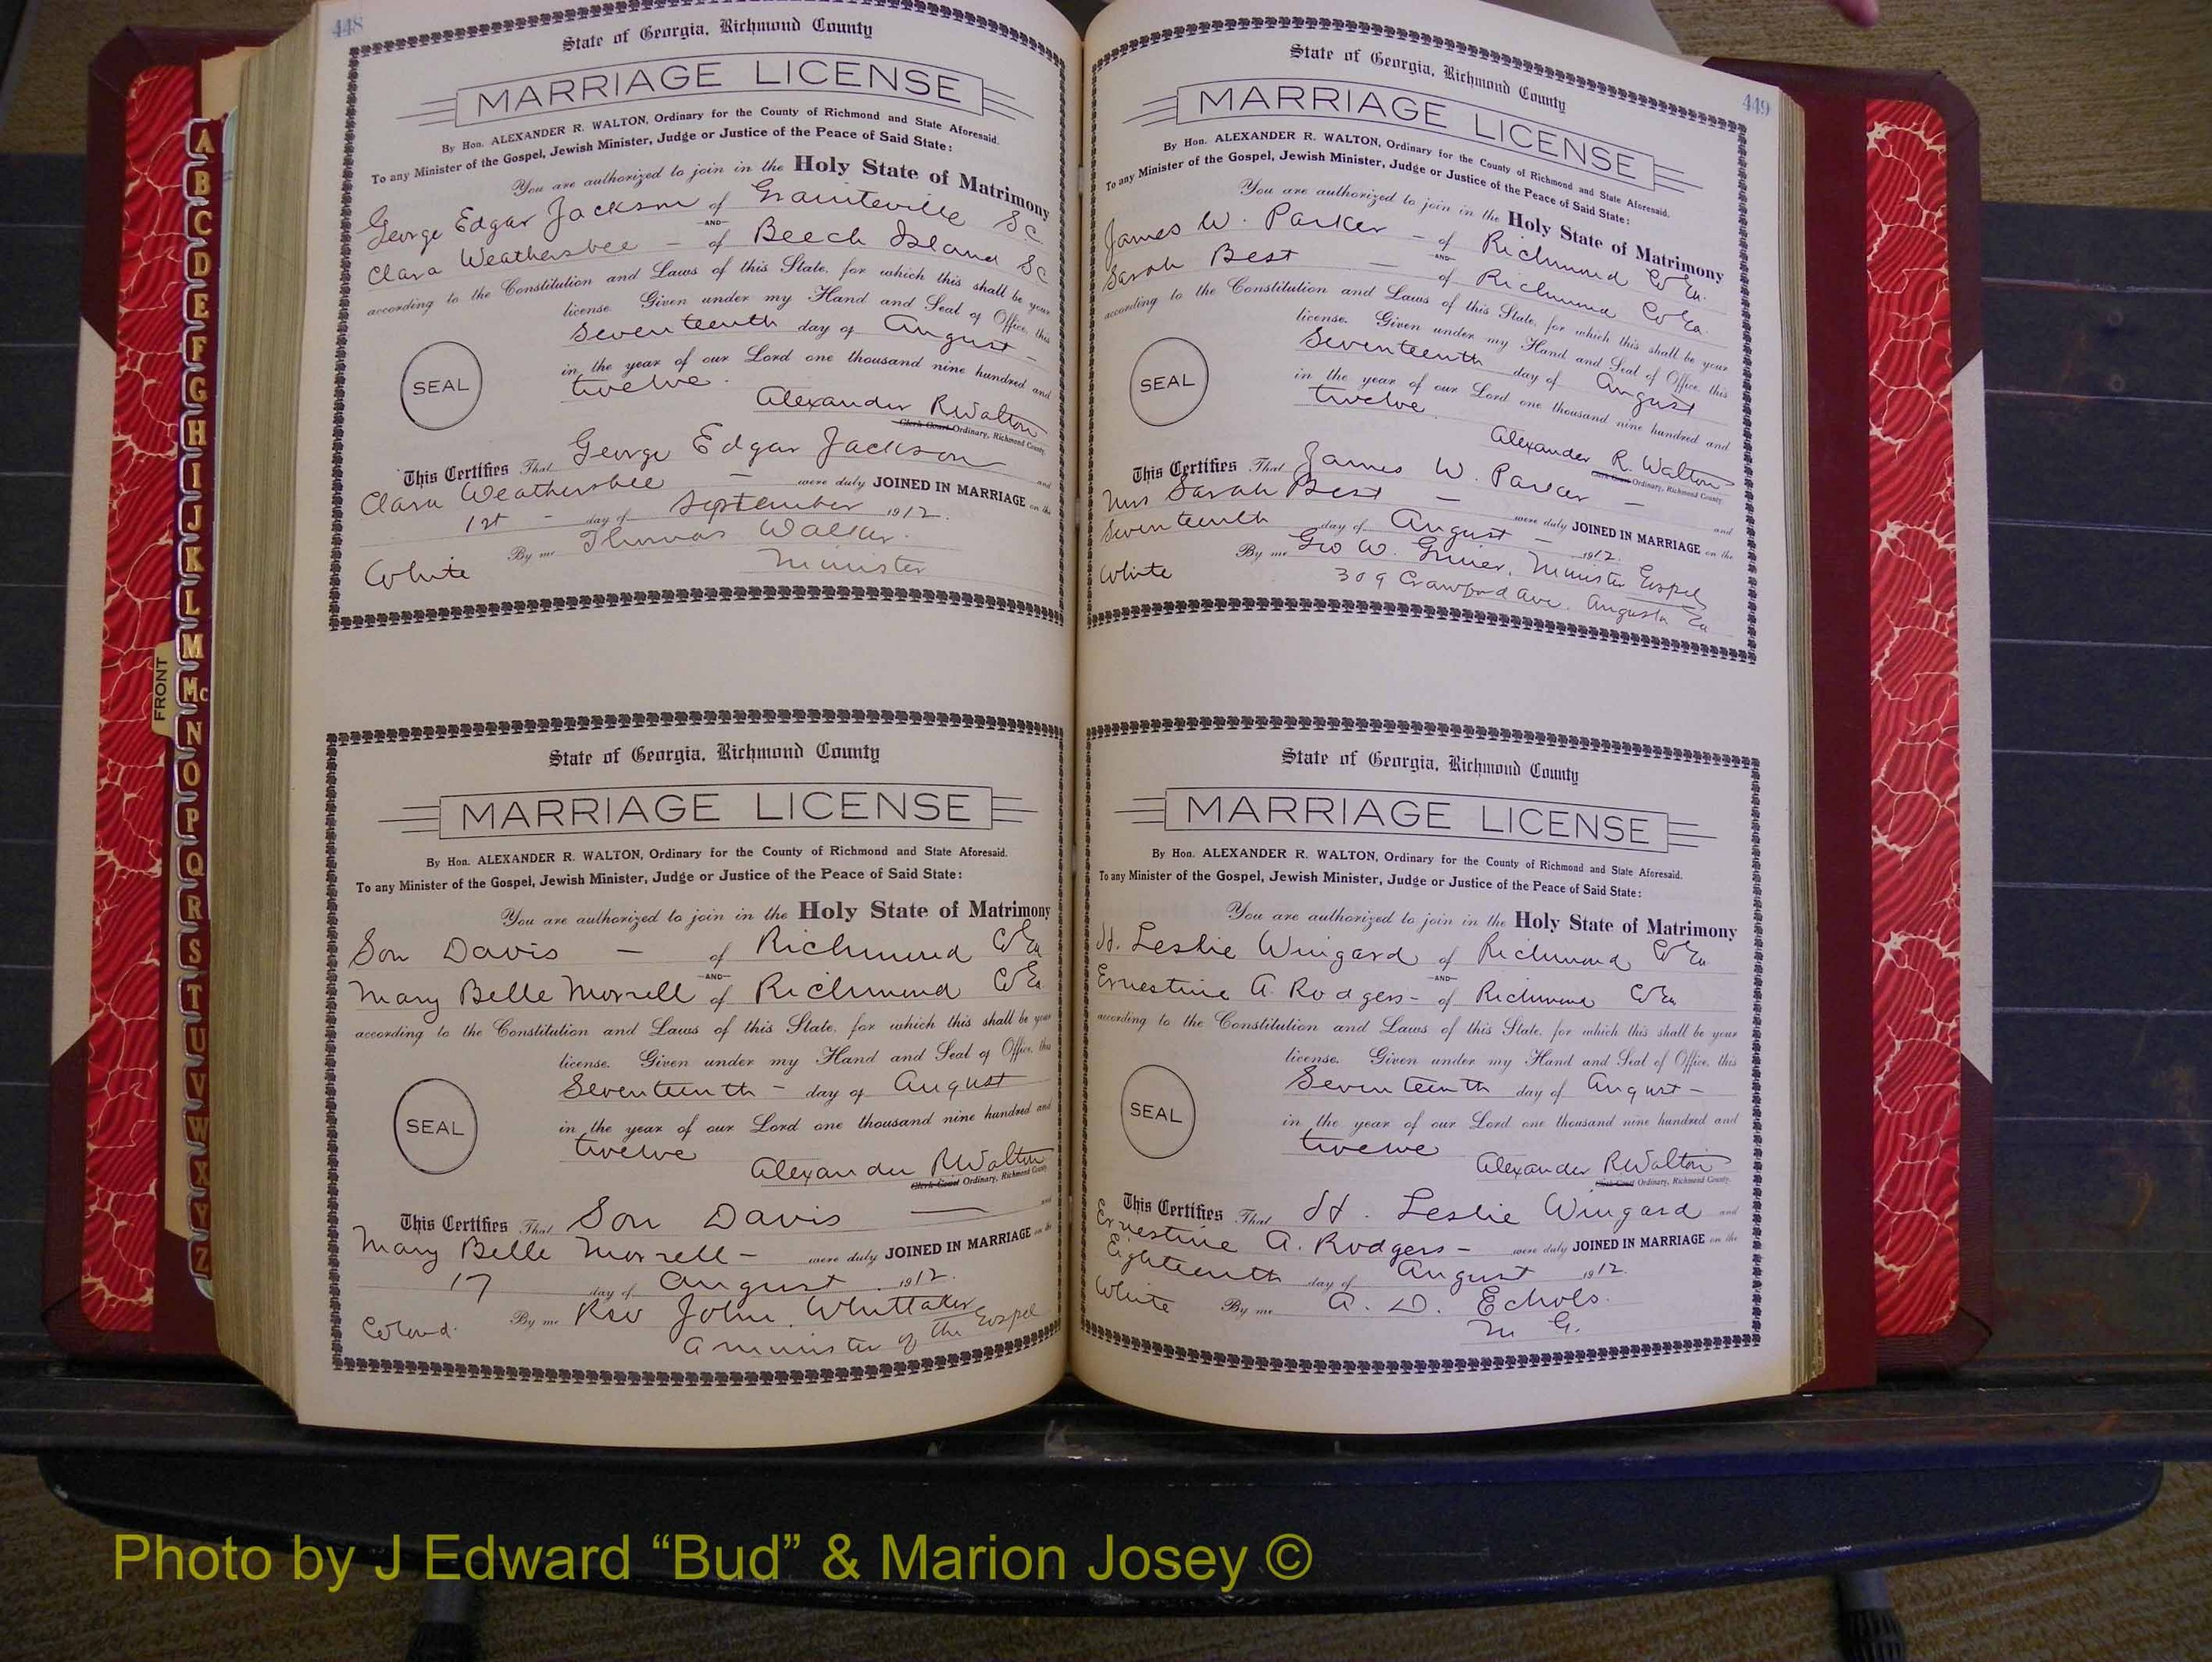 448
State of Georgia, Richmond County
MARRIAGE LICENSE
By Hon. ALEXANDER R. WALTON, Ordinary for the County of Richmond and State Aforesaid.
To any Minister of the Gospel, Jewish Minister, Judge or Justice of the Peace of Said State:
You are authorized to join in the Holy State of Matrimony
George Edgar Jackson of Graniteville S.C.
AND
Clara Weathersbee - of Beech Island S C
according to the Constitution and Laws of this State, for which this shall be your
license. Given under my Hand and Seal of Office, this
Seventeenth day of August -
in the year of our Lord one thousand nine hundred and
twelve.
SEAL
Alexander R Walton
Clerk Court Ordinary, Richmond County
This Certifies That George Edgar Jackson and
Clara Weathersbee - were duly JOINED IN MARRIAGE on the
1st - day of September 1912.
By me Thomas Walker.
White Minister
State of Georgia, Richmond County
MARRIAGE LICENSE
By Hon. ALEXANDER R. WALTON, Ordinary for the County of Richmond and State Aforesaid.
To any Minister of the Gospel, Jewish Minister, Judge or Justice of the Peace of Said State:
You are authorized to join in the Holy State of Matrimony
Son Davis - of Richmond Co Ga
AND
Mary Belle Morrell of Richmond Co Ga
according to the Constitution and Laws of this State, for which this shall be your
license. Given under my Hand and Seal of Office, this
Seventeenth - day of August
in the year of our Lord one thousand nine hundred and
twelve
SEAL
Alexander R Walton
Clerk Court Ordinary, Richmond County
This Certifies That Son Davis - and
Mary Belle Morrell - were duly JOINED IN MARRIAGE on the
17 day of August 1912.
By me Rev John Whittaker
Colored. a minister of the Gospel
449
State of Georgia, Richmond County
MARRIAGE LICENSE
By Hon. ALEXANDER R. WALTON, Ordinary for the County of Richmond and State Aforesaid.
To any Minister of the Gospel, Jewish Minister, Judge or Justice of the Peace of Said State:
You are authorized to join in the Holy State of Matrimony
James W. Parker - of Richmond Co Ga.
AND
Sarah Best - of Richmond Co Ga
according to the Constitution and Laws of this State, for which this shall be your
license. Given under my Hand and Seal of Office, this
Seventeenth day of August
in the year of our Lord one thousand nine hundred and
twelve
SEAL
Alexander R. Walton
Clerk Court Ordinary, Richmond County
This Certifies That James W. Parker - and
Mrs Sarah Best - were duly JOINED IN MARRIAGE on the
Seventeenth day of August - 1912.
By me Geo W. Griner, Minister Gospel
White 309 Crawford Ave. Augusta Ga
State of Georgia, Richmond County
MARRIAGE LICENSE
By Hon. ALEXANDER R. WALTON, Ordinary for the County of Richmond and State Aforesaid.
To any Minister of the Gospel, Jewish Minister, Judge or Justice of the Peace of Said State:
You are authorized to join in the Holy State of Matrimony
Leslie Wingard of Richmond Co Ga
AND
Ernestine A. Rodgers - of Richmond Co Ga
according to the Constitution and Laws of this State, for which this shall be your
license. Given under my Hand and Seal of Office, this
Seventeenth day of August -
in the year of our Lord one thousand nine hundred and
twelve
SEAL
Alexander R Walton
Clerk Court Ordinary, Richmond County
This Certifies That Leslie Wingard and
Ernestine A. Rodgers - were duly JOINED IN MARRIAGE on the
Eighteenth day of August 1912.
White By me A. D. Echols.
M G.
FRONT
A
B
C
D
E
F
G
H
I
J
K
L
M
Mc
N
O
P
Q
R
S
T
U
V
W
X
Y
Z
Photo by J Edward “Bud” & Marion Josey ©